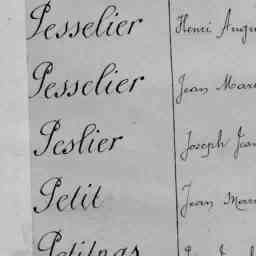 Pesselier Henri
Pesselier Jean
Peslier Joseph Jean
Petit Jean
Petitpas